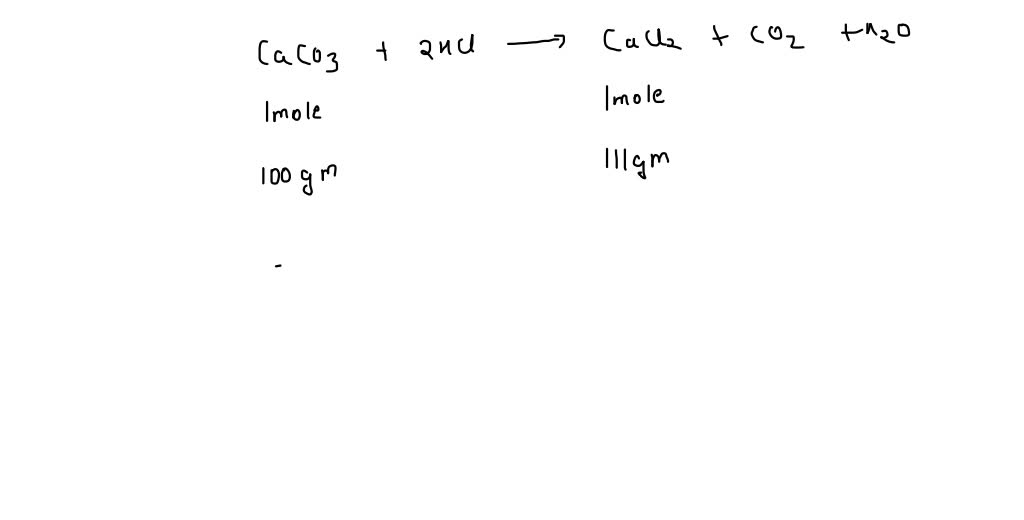 CaCO3 + 2HCl → CaCl2 + CO2 + H2O
1mole 1mole
100 gm 111gm
-